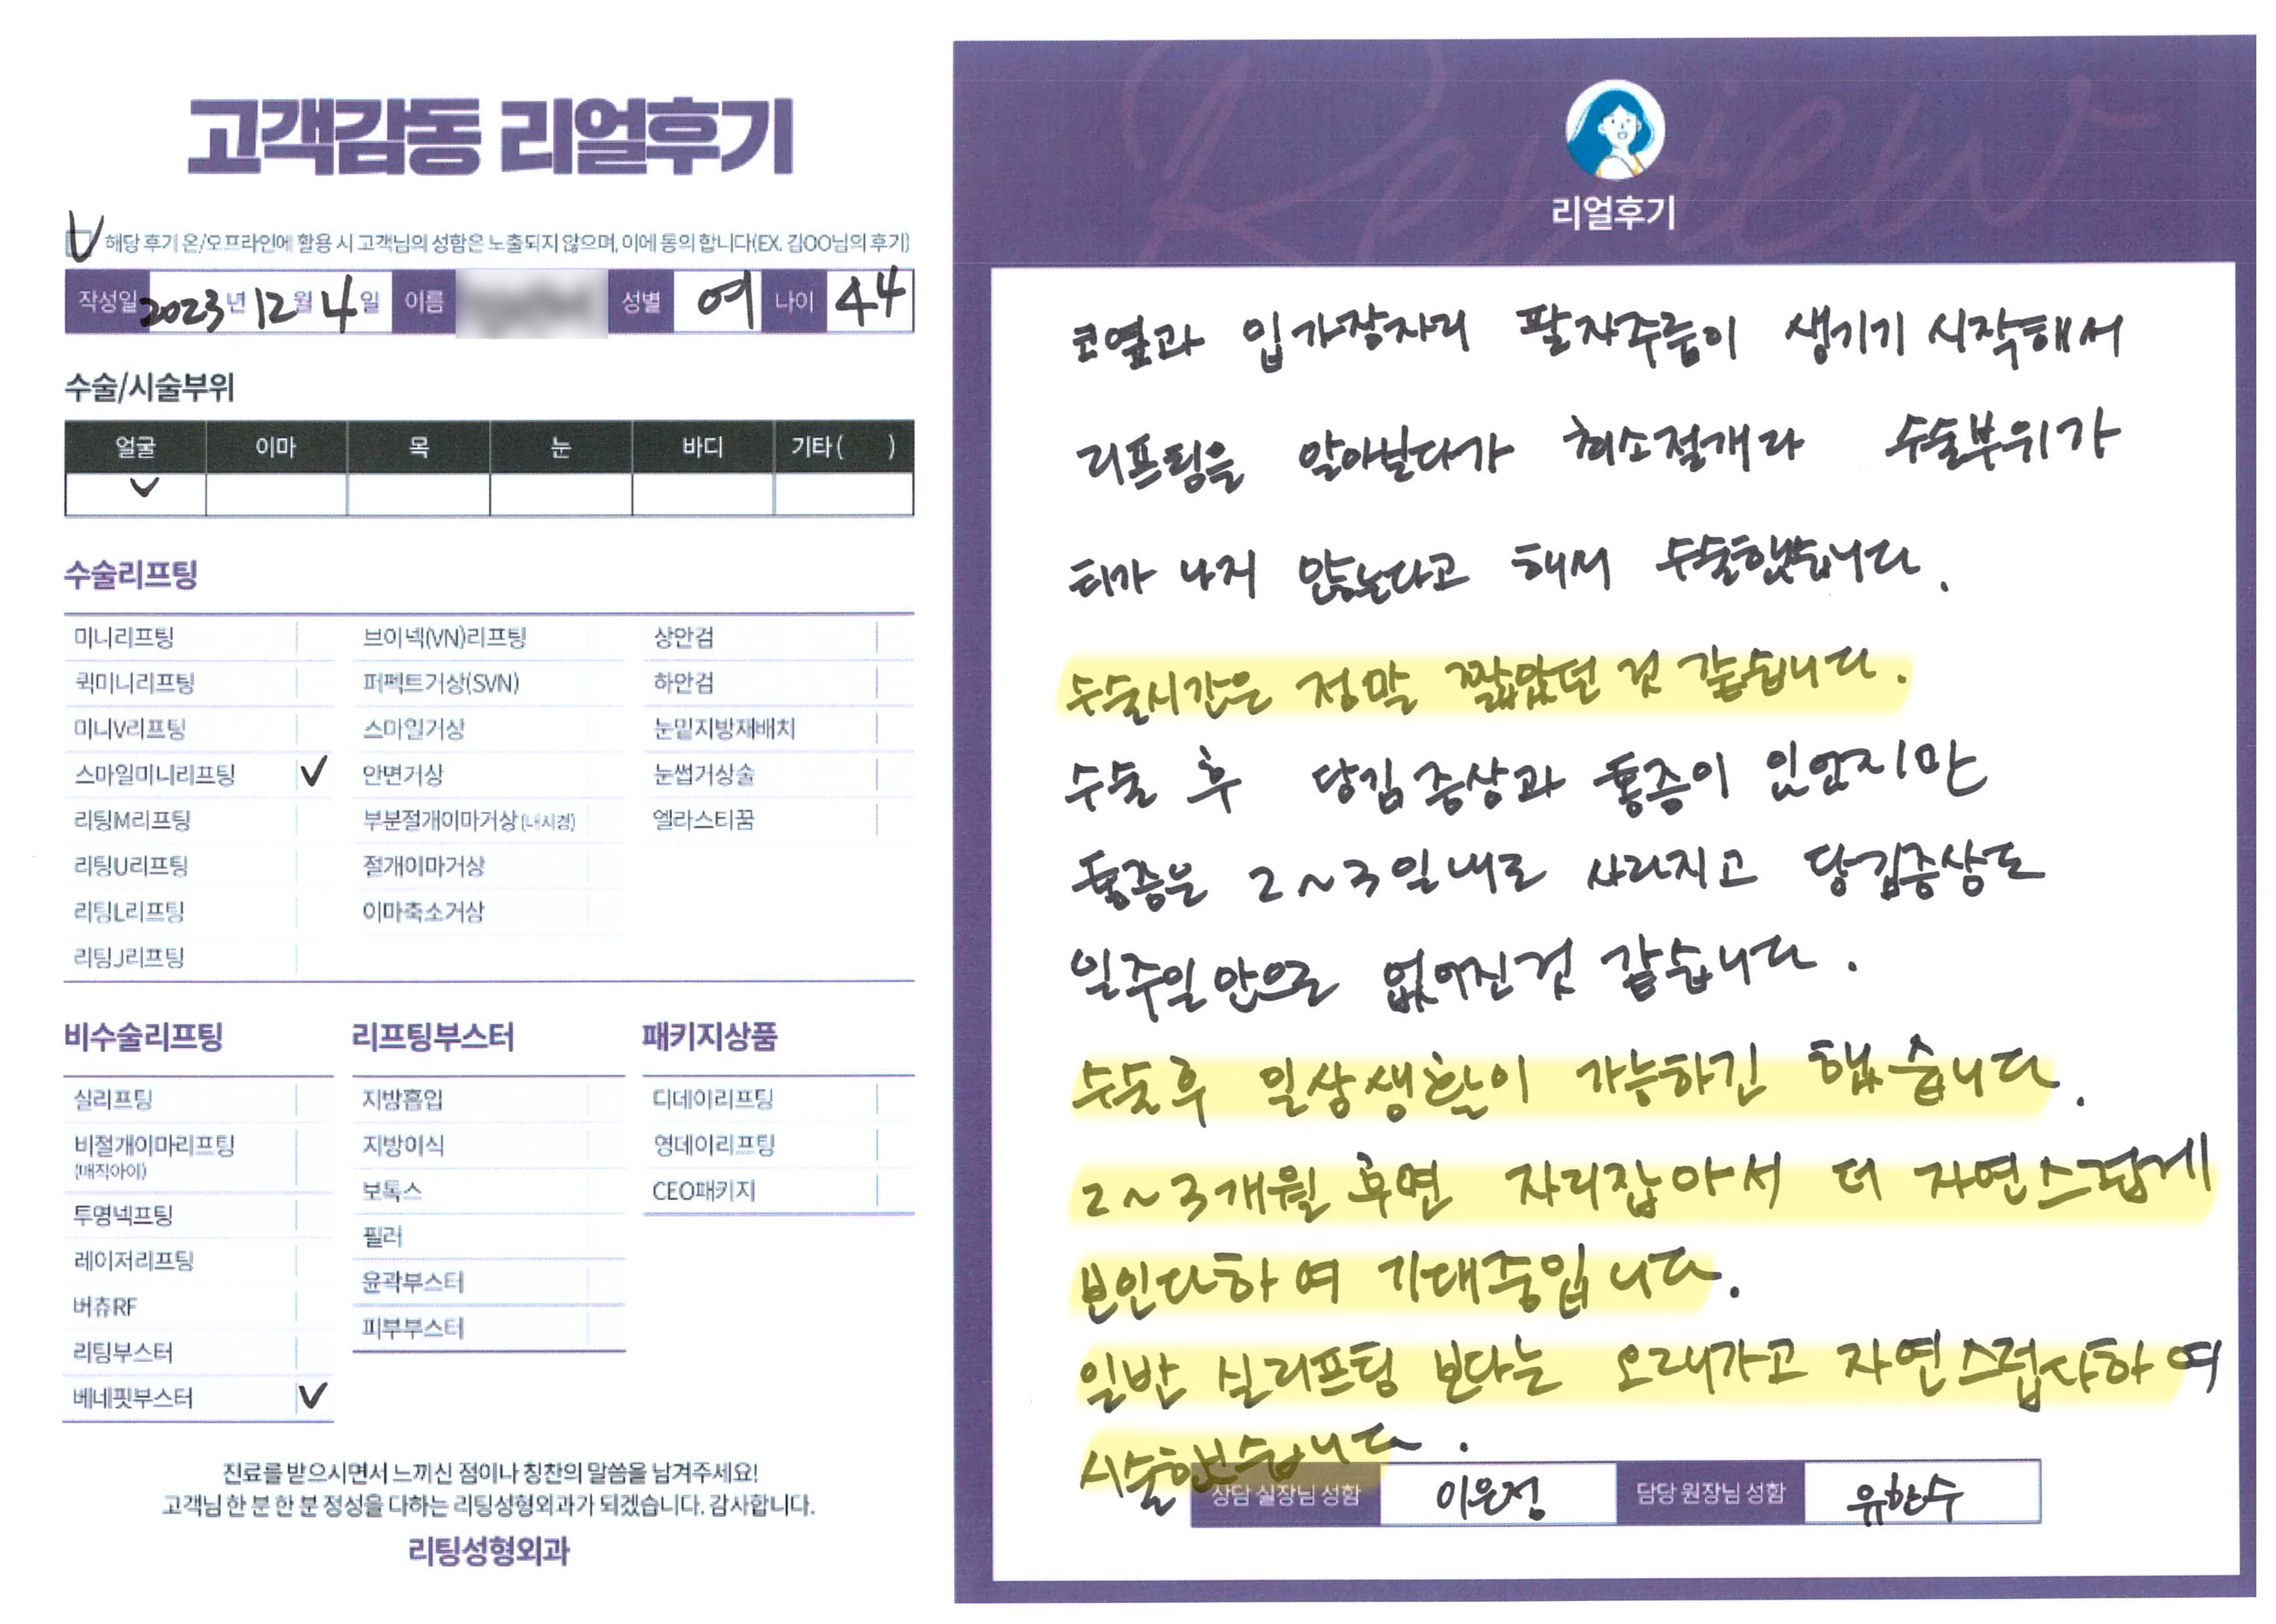 고객감동 리얼후기
해당 후기 온/오프라인에 활용 시 고객님의 성함은 노출되지 않으며, 이에 동의 합니다(EX. 김OO님의 후기)
작성일 2023년 12월 4일 이름 성별 여 나이 44
수술/시술부위
얼굴 이마 목 눈 바디 기타( )
수술리프팅
미니리프팅 브이넥(VN)리프팅 상안검
퀵미니리프팅 퍼펙트거상(SVN) 하안검
미니V리프팅 스마일거상 눈밑지방재배치
스마일미니리프팅 안면거상 눈썹거상술
리팅M리프팅 부분절개이마거상(내시경) 엘라스티꿈
리팅U리프팅 절개이마거상
리팅L리프팅 이마축소거상
리팅J리프팅
비수술리프팅 리프팅부스터 패키지상품
실리프팅 지방흡입 디데이리프팅
비절개이마리프팅 지방이식 영데이리프팅
(매직아이) 보톡스 CEO패키지
투명넥프팅 필러
레이저리프팅 윤곽부스터
버츄RF 피부부스터
리팅부스터
베네핏부스터
진료를 받으시면서 느끼신 점이나 칭찬의 말씀을 남겨주세요!
고객님 한 분 한 분 정성을 다하는 리팅성형외과가 되겠습니다. 감사합니다.
리팅성형외과
Review
리얼후기
코옆과 입가장자리 팔자주름이 생기기 시작해서
리프팅을 알아보다가 최소절개라 수술부위가
티가 나지 않는다고 해서 수술했습니다.
수술시간은 정말 짧았던 것 같습니다.
수술 후 당김증상과 통증이 있었지만
통증은 2~3일내로 사라지고 당김증상도
일주일안으로 없어진것 같습니다.
수술후 일상생활이 가능하긴 했습니다.
2~3개월 후면 자리잡아서 더 자연스럽게
보인다하여 기대중입니다.
일반 실리프팅 보다는 오래가고 자연스럽다하여
시술했습니다.
상담 실장님 성함 이은정 담당 원장님 성함 유한수